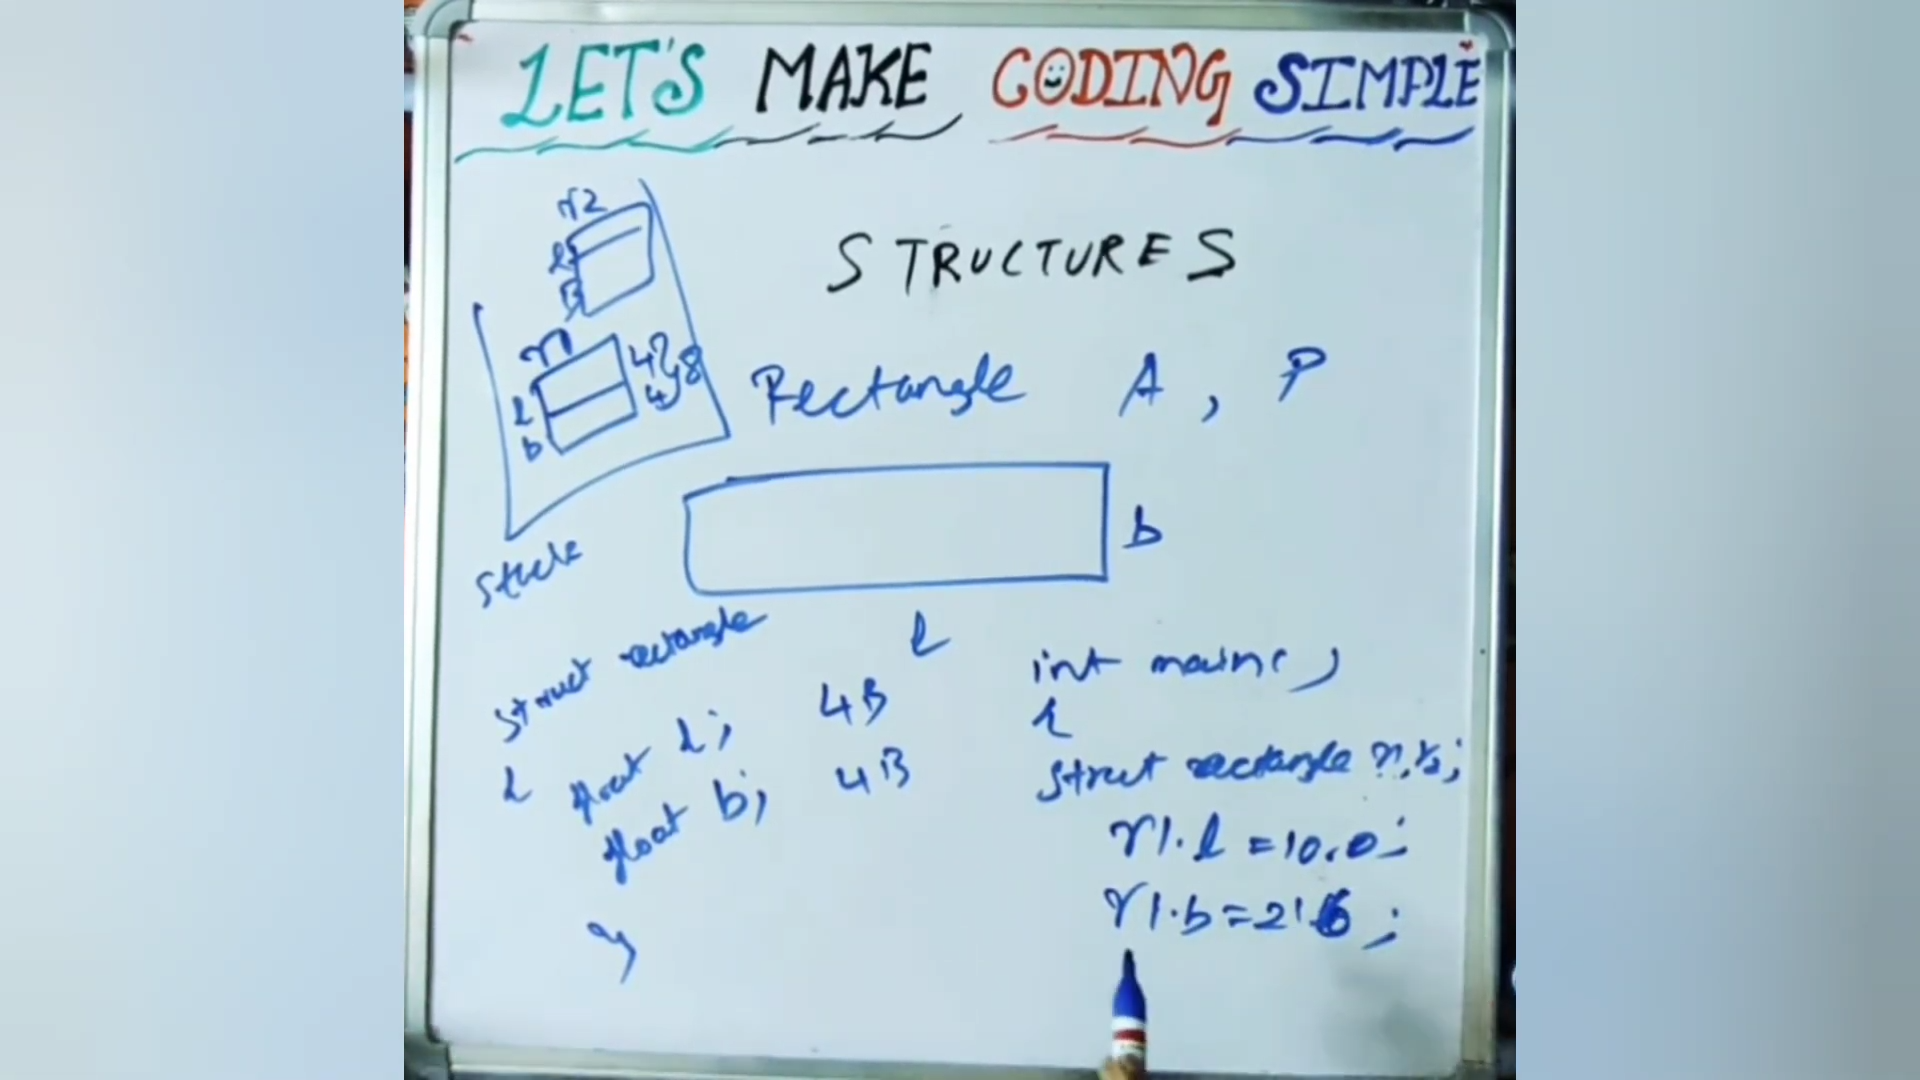 LET'S MAKE CODING SIMPLE
STRUCTURES
r2
l
B
r1
4
4
8
l
b
Rectangle A, P
b
l
Stack
struct rectangle
{
float l; 4B
float b; 4B
}
int main()
{
struct rectangle r1, r2;
r1.l = 10.0;
r1.b = 2.6;